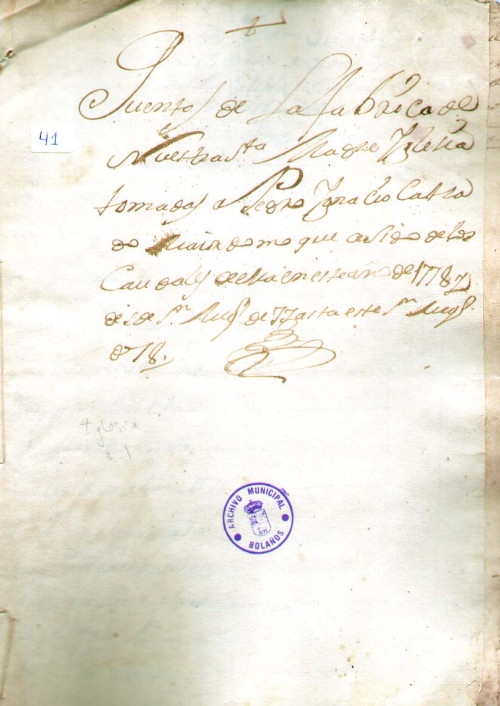 +
Quentas de La fabrica de
Nuestra sta Madre Yglesia
tomadas a Pedro Ygnacio Calza
do Maiordomo que a sido de los
Caudales de ella en este año de 1778
desde Sn Migl de 77 asta este Sn Migl
de 78.
41
Yglesia
ARCHIVO MUNICIPAL
BOLAÑOS